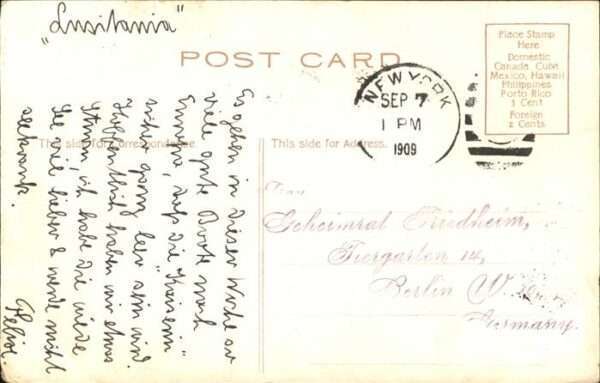 "Lusitania"
POST CARD
Place Stamp
Here
Domestic
Canada, Cuba
Mexico, Hawaii
Philippines
Porto Rico
1 Cent
Foreign
2 Cents
NEW YORK
SEP 7
1 PM
1909
This side for Correspondence
This side for Address.
Es gehen in dieser Woche so
viele gute Boote nach
Europa, daß die "Kaiserin"
sicher ganz leer sein wird.
Hoffentlich haben wir etwas
Sturm, ich habe die wilde
See viel lieber & werde nicht
seekrank.
Felix.
Frau
Geheimrat Friedheim,
Tiergarten 14,
Berlin W.
Germany.